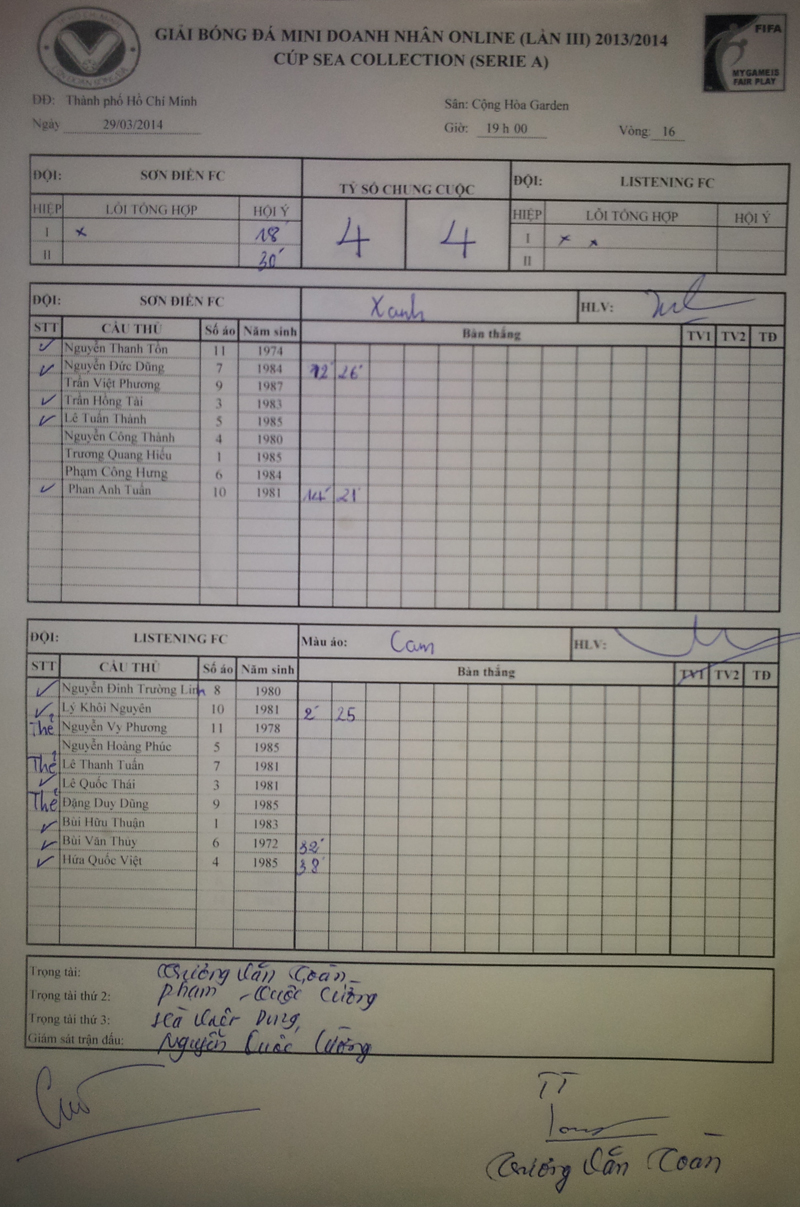 GIẢI BÓNG ĐÁ MINI DOANH NHÂN ONLINE (LẦN III) 2013/2014
CÚP SEA COLLECTION (SERIE A)
FIFA
MY GAME IS
FAIR PLAY
ĐĐ: Thành phố Hồ Chí Minh
Sân: Cộng Hòa Garden
Ngày 29/03/2014
Giờ: 19 h 00
Vòng: 16
ĐỘI: SƠN ĐIỀN FC TỶ SỐ CHUNG CUỘC ĐỘI: LISTENING FC
HIỆP LỖI TỔNG HỢP HỘI Ý HIỆP LỖI TỔNG HỢP HỘI Ý
I x 18' 4 4 I x x
II 30' II
ĐỘI: SƠN ĐIỀN FC Xanh HLV:
STT CẦU THỦ Số áo Năm sinh Bàn thắng TV1 TV2 TĐ
✓ Nguyễn Thanh Tồn 11 1974
✓ Nguyễn Đức Dũng 7 1984 12' 26'
Trần Việt Phương 9 1987
✓ Trần Hồng Tài 3 1983
✓ Lê Tuấn Thành 5 1985
Nguyễn Công Thành 4 1980
Trương Quang Hiếu 1 1985
Phạm Công Hưng 6 1984
✓ Phan Anh Tuấn 10 1981 14' 21'
ĐỘI: LISTENING FC Màu áo: Cam HLV:
STT CẦU THỦ Số áo Năm sinh Bàn thắng TV1 TV2 TĐ
✓ Nguyễn Đình Trường Linh 8 1980
✓ Lý Khôi Nguyên 10 1981 2' 25
Thẻ Nguyễn Vy Phương 11 1978
Nguyễn Hoàng Phúc 5 1985
Thẻ Lê Thanh Tuấn 7 1981
✓ Lê Quốc Thái 3 1981
Thẻ Đặng Duy Dũng 9 1985
✓ Bùi Hữu Thuận 1 1983
✓ Bùi Văn Thủy 6 1972 32'
✓ Hứa Quốc Việt 4 1985 38'
Trọng tài: Trương Văn Toàn
Trọng tài thứ 2: Phạm Quốc Cường
Trọng tài thứ 3: Dung
Giám sát trận đấu: Nguyễn Quốc Cường
TT
Trương Văn Toàn